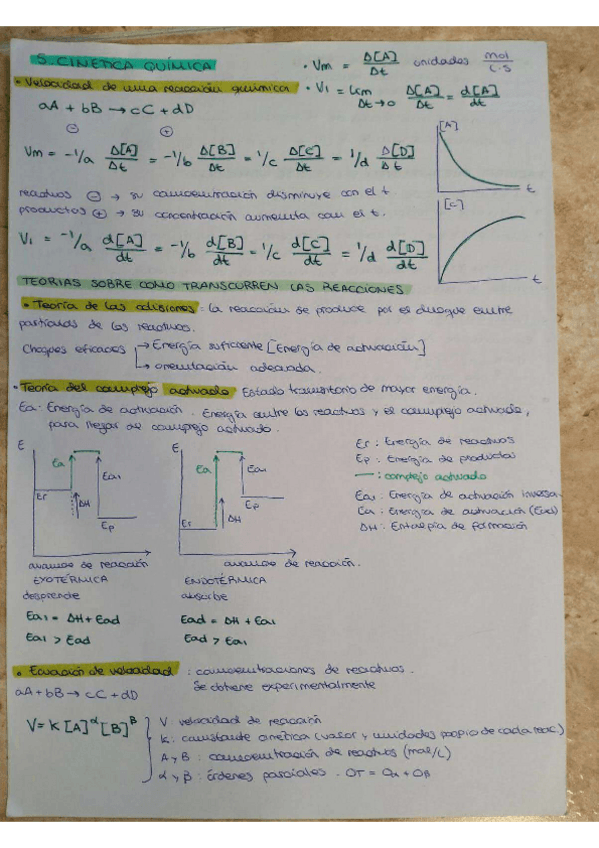 5. CINÉTICA QUÍMICA
• Vm = Δ[A]/Δt unidades mol/L·S
• Velocidad de una reacción química
• Vi = Lim Δt→0 Δ[A]/Δt = d[A]/dt
aA + bB → cC + dD
⊖ ⊕
Vm = -1/a Δ[A]/Δt = -1/b Δ[B]/Δt = 1/c Δ[C]/Δt = 1/d Δ[D]/Δt
[A]
t
reactivos ⊖ → su concentración disminuye con el t
productos ⊕ → su concentración aumenta con el t.
[C]
t
Vi = -1/a d[A]/dt = -1/b d[B]/dt = 1/c d[C]/dt = 1/d d[D]/dt
TEORIAS SOBRE COMO TRANSCURREN LAS REACCIONES
• Teoría de las colisiones: la reacción se produce por el choque entre
partículas de los reactivos.
Choques eficaces → Energía suficiente [Energía de activación]
→ orientación adecuada.
• Teoría del complejo activado Estado transitorio de mayor energía.
Ea: Energía de activación. Energía entre los reactivos y el complejo activado,
para llegar al complejo activado.
E Ea Eai Er ΔH Ep
E Ea Eai Ep Er ΔH
Er: Energía de reactivos
Ep: Energía de productos
—: complejo activado
Eai: Energía de activación inversa
Ea: Energía de activación (Ead)
ΔH: Entalpía de formación
avance de reacción
avance de reacción.
EXOTÉRMICA
ENDOTÉRMICA
desprende
absorbe
Eai = ΔH + Ead
Ead = ΔH + Eai
Eai > Ead
Ead > Eai
• Ecuación de velocidad: concentraciones de reactivos.
Se obtiene experimentalmente
aA + bB → cC + dD
V = K [A]^α [B]^β
V: velocidad de reacción
K: constante cinética (valor y unidades propio de cada reac)
A y B: concentración de reactivos (mol/L)
α y β: órdenes parciales. OT = Oα + Oβ